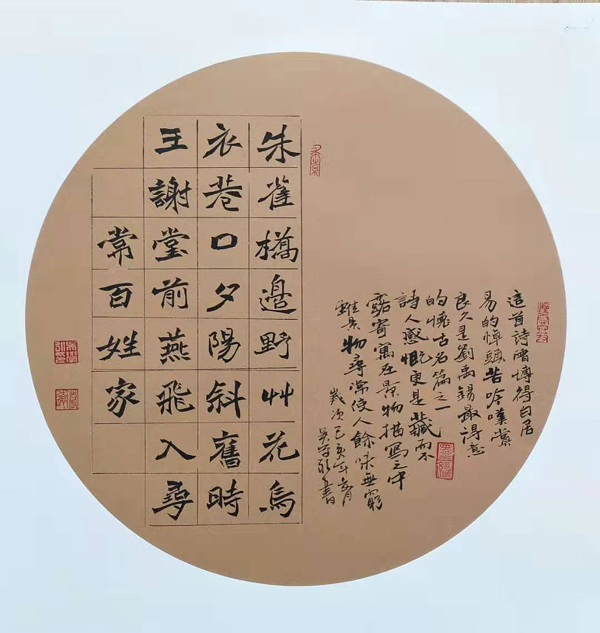 朱雀橋邊野艸花烏
衣巷口夕陽斜舊時
王謝堂前燕飛入尋
常百姓家
這首詩曾博得白居
易的掉頭苦吟嘆賞
良久是劉禹錫最得意
的懷古名篇之一
詩人感慨更是藏而不
露寄寓在景物描寫之中
雖景物尋常使人餘味無窮
歲次己亥年月
吳書